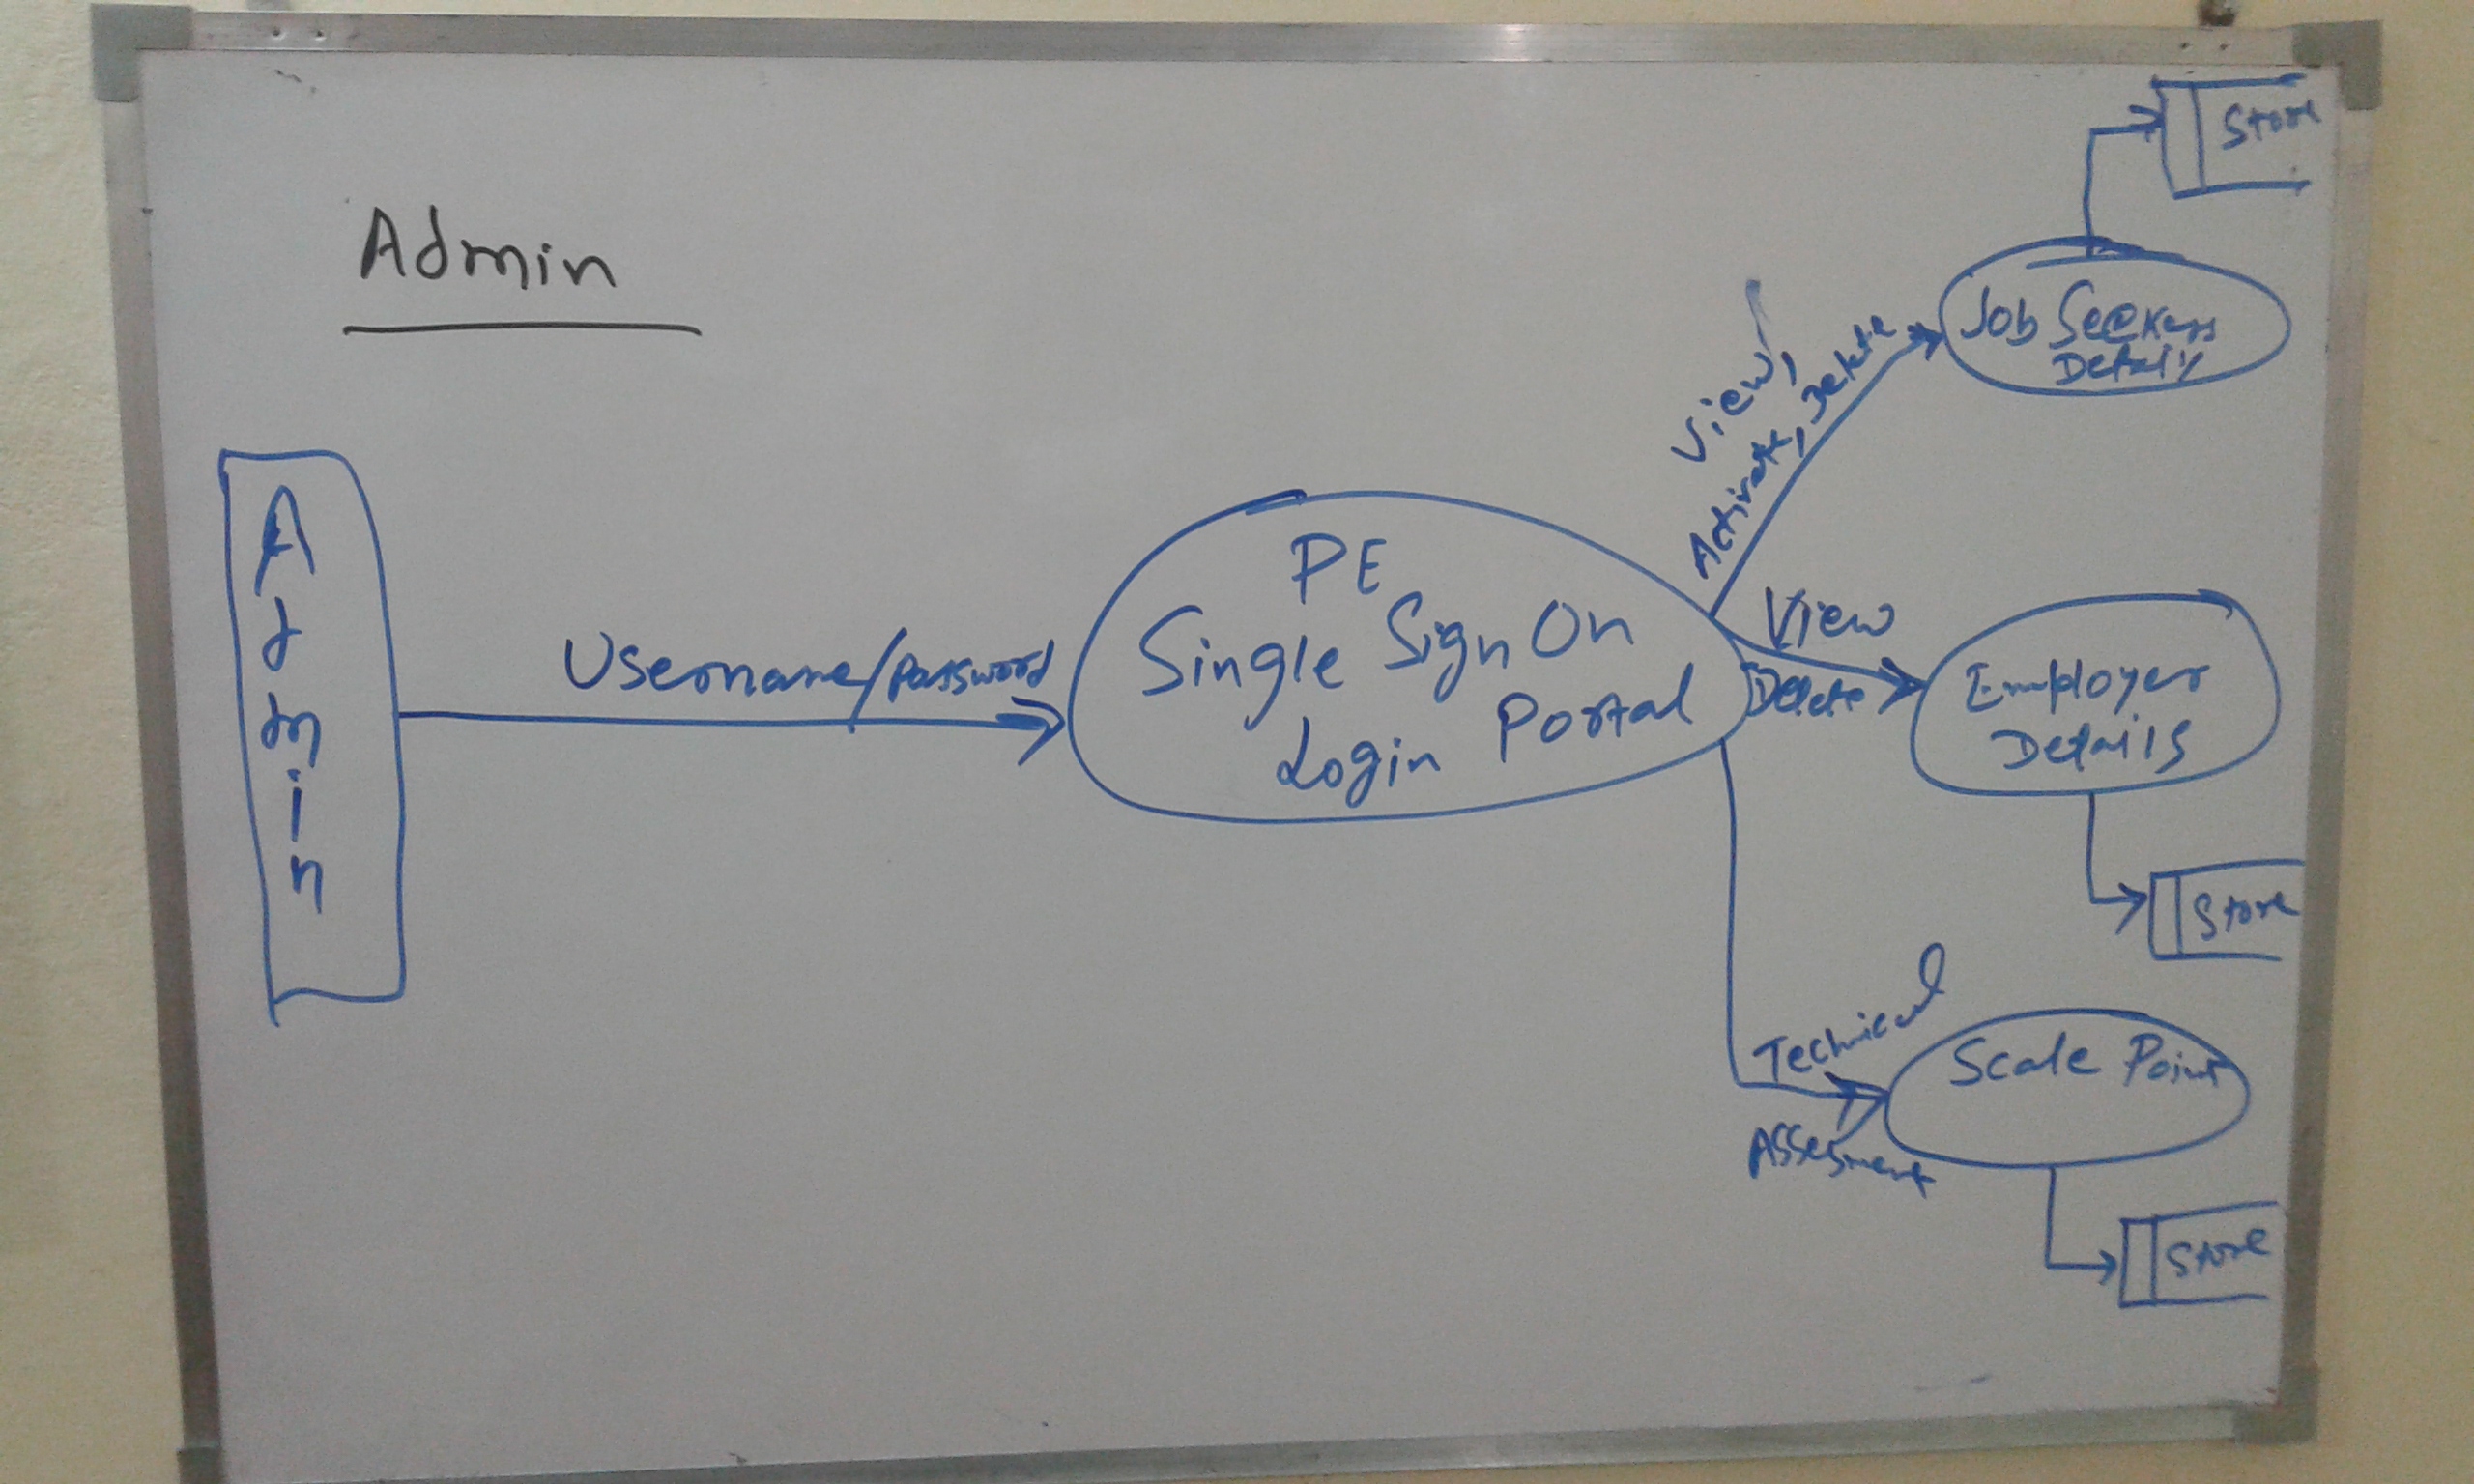 Admin
Admin
Username/password
PE
Single Sign On
Login Portal
View,
Activate, Delete
Job Seekers
Details
Store
View
Delete
Employer
Details
Store
Technical
Assesment
Scale Point
Store